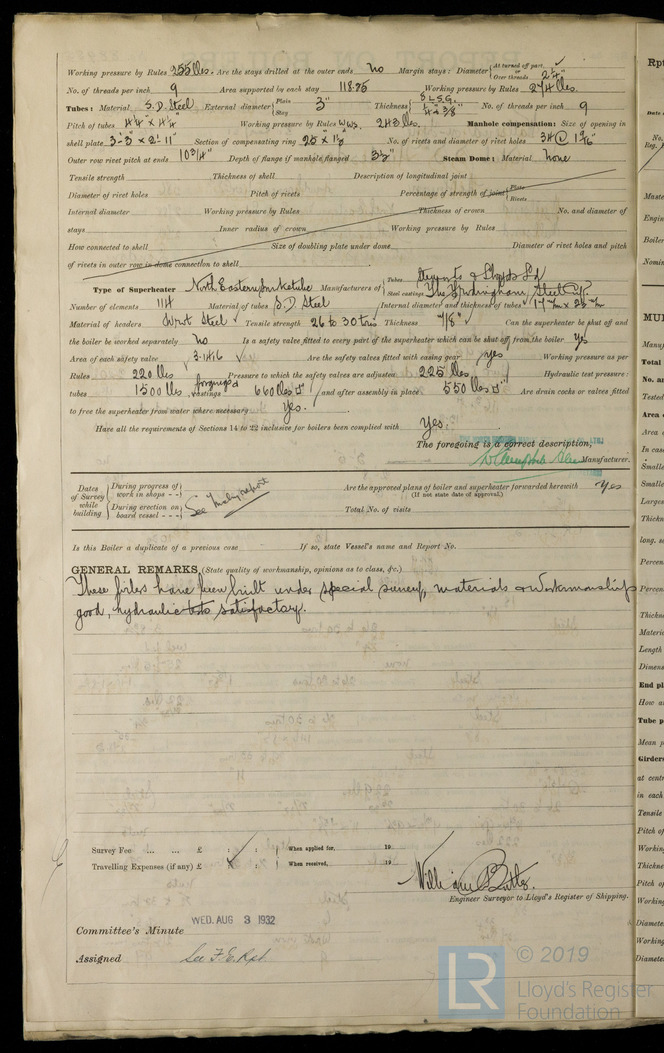 Working pressure by Rules 255 lbs. Are the stays drilled at the outer ends No Margin stays: Diameter { At turned off part, or Over threads 2¼"
No. of threads per inch 9 Area supported by each stay 118.25 Working pressure by Rules 274 lbs.
Tubes: Material S.D. Steel External diameter { Plain Stay 3" Thickness { 8 L.S.G. No. of threads per inch 9
Pitch of tubes 4¼" x 4¼" Working pressure by Rules 243 lbs. Manhole compensation: Size of opening in
shell plate Section of compensating ring No. of rivets and diameter of rivet holes 34 @
Outer row rivet pitch at ends 10¾" Depth of flange if manhole flanged 3½" Steam Dome: Material None
Tensile strength Thickness of shell Description of longitudinal joint
Diameter of rivet holes Pitch of rivets Percentage of strength of joint { Plate Rivets
Internal diameter Working pressure by Rules Thickness of crown No. and diameter of
stays Inner radius of crown Working pressure by Rules
How connected to shell Size of doubling plate under dome Diameter of rivet holes and pitch
of rivets in outer row in dome connection to shell
Type of Superheater North Eastern Smoketube Manufacturers of { Tubes Stewarts & Lloyds Ld Steel castings The
Number of elements 114 Material of tubes S.D Steel Internal diameter and thickness of tubes
Material of headers Wrot Steel Tensile strength 26 to 30 tons Thickness 7/8" Can the superheater be shut off and
the boiler be worked separately No Is a safety valve fitted to every part of the superheater which can be shut off from the boiler yes
Area of each safety valve 3.1416 Are the safety valves fitted with easing gear yes Working pressure as per
Rules 220 lbs Pressure to which the safety valves are adjusted 225 lbs. Hydraulic test pressure:
tubes 1500 lbs forgings & castings 660 lbs □" and after assembly in place 550 lbs □" Are drain cocks or valves fitted
to free the superheater from water where necessary Yes.
Have all the requirements of Sections 14 to 22 inclusive for boilers been complied with Yes.
The foregoing is a correct description,
Manufacturer.
Dates of Survey while building { During progress of work in shops - - During erection on board vessel - - - See Mchy report Are the approved plans of boiler and superheater forwarded herewith Yes
(If not state date of approval.)
Total No. of visits
Is this Boiler a duplicate of a previous case If so, state Vessel's name and Report No.
GENERAL REMARKS (State quality of workmanship, opinions as to class, &c.)
These boilers have been built under special survey, materials & workmanship
good, hydraulic tests satisfactory.
Survey Fee ... ... £ : : When applied for, 19
Travelling Expenses (if any) £ : : When received, 19
William Butler.
Engineer Surveyor to Lloyd's Register of Shipping.
WED. AUG 3 1932
Committee's Minute
Assigned See F.E. Rpt
LR © 2019
Lloyd's Register
Foundation